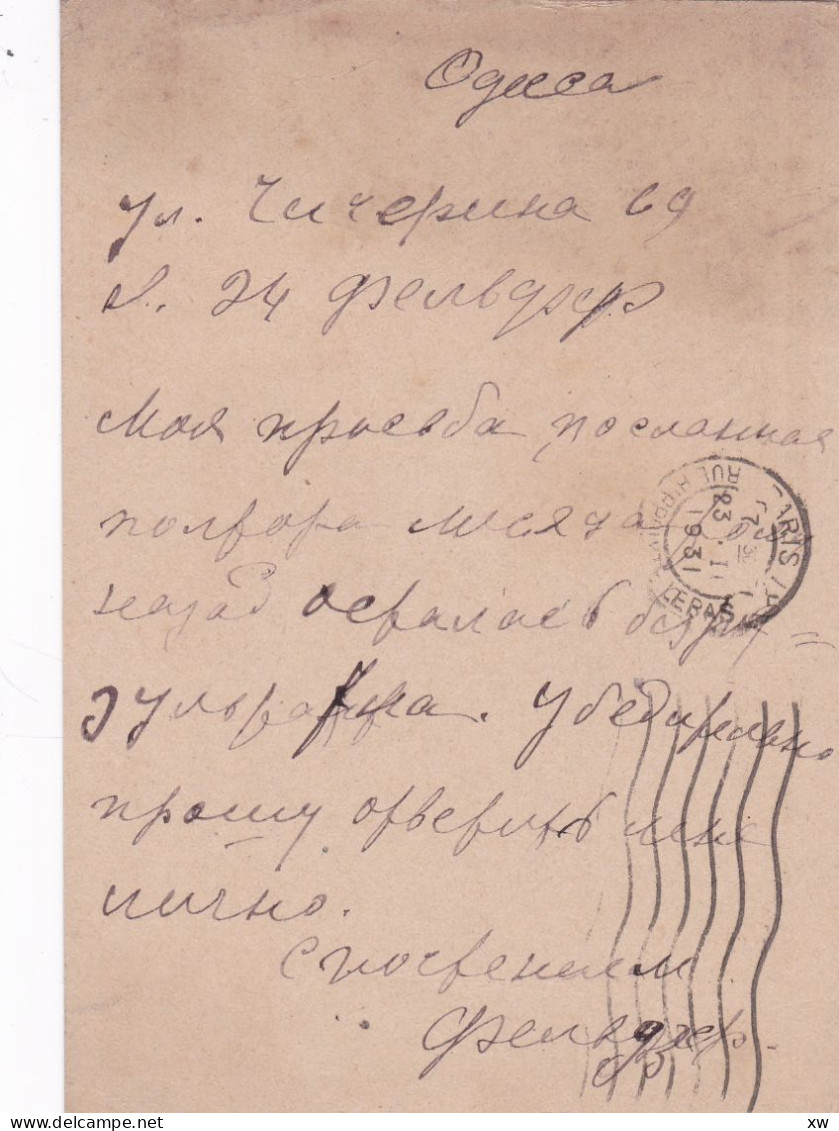 Одесса
ул. Чичерина 69
24 Фельдзер
Моя просьба посланная
полтора месяца
назад осталась без ре=
зультата. Убедительно
прошу ответить мне
лично.
с почтением
Фельдзер.
PARIS
RUE HIPPOLYTE LEBAS
23
1931